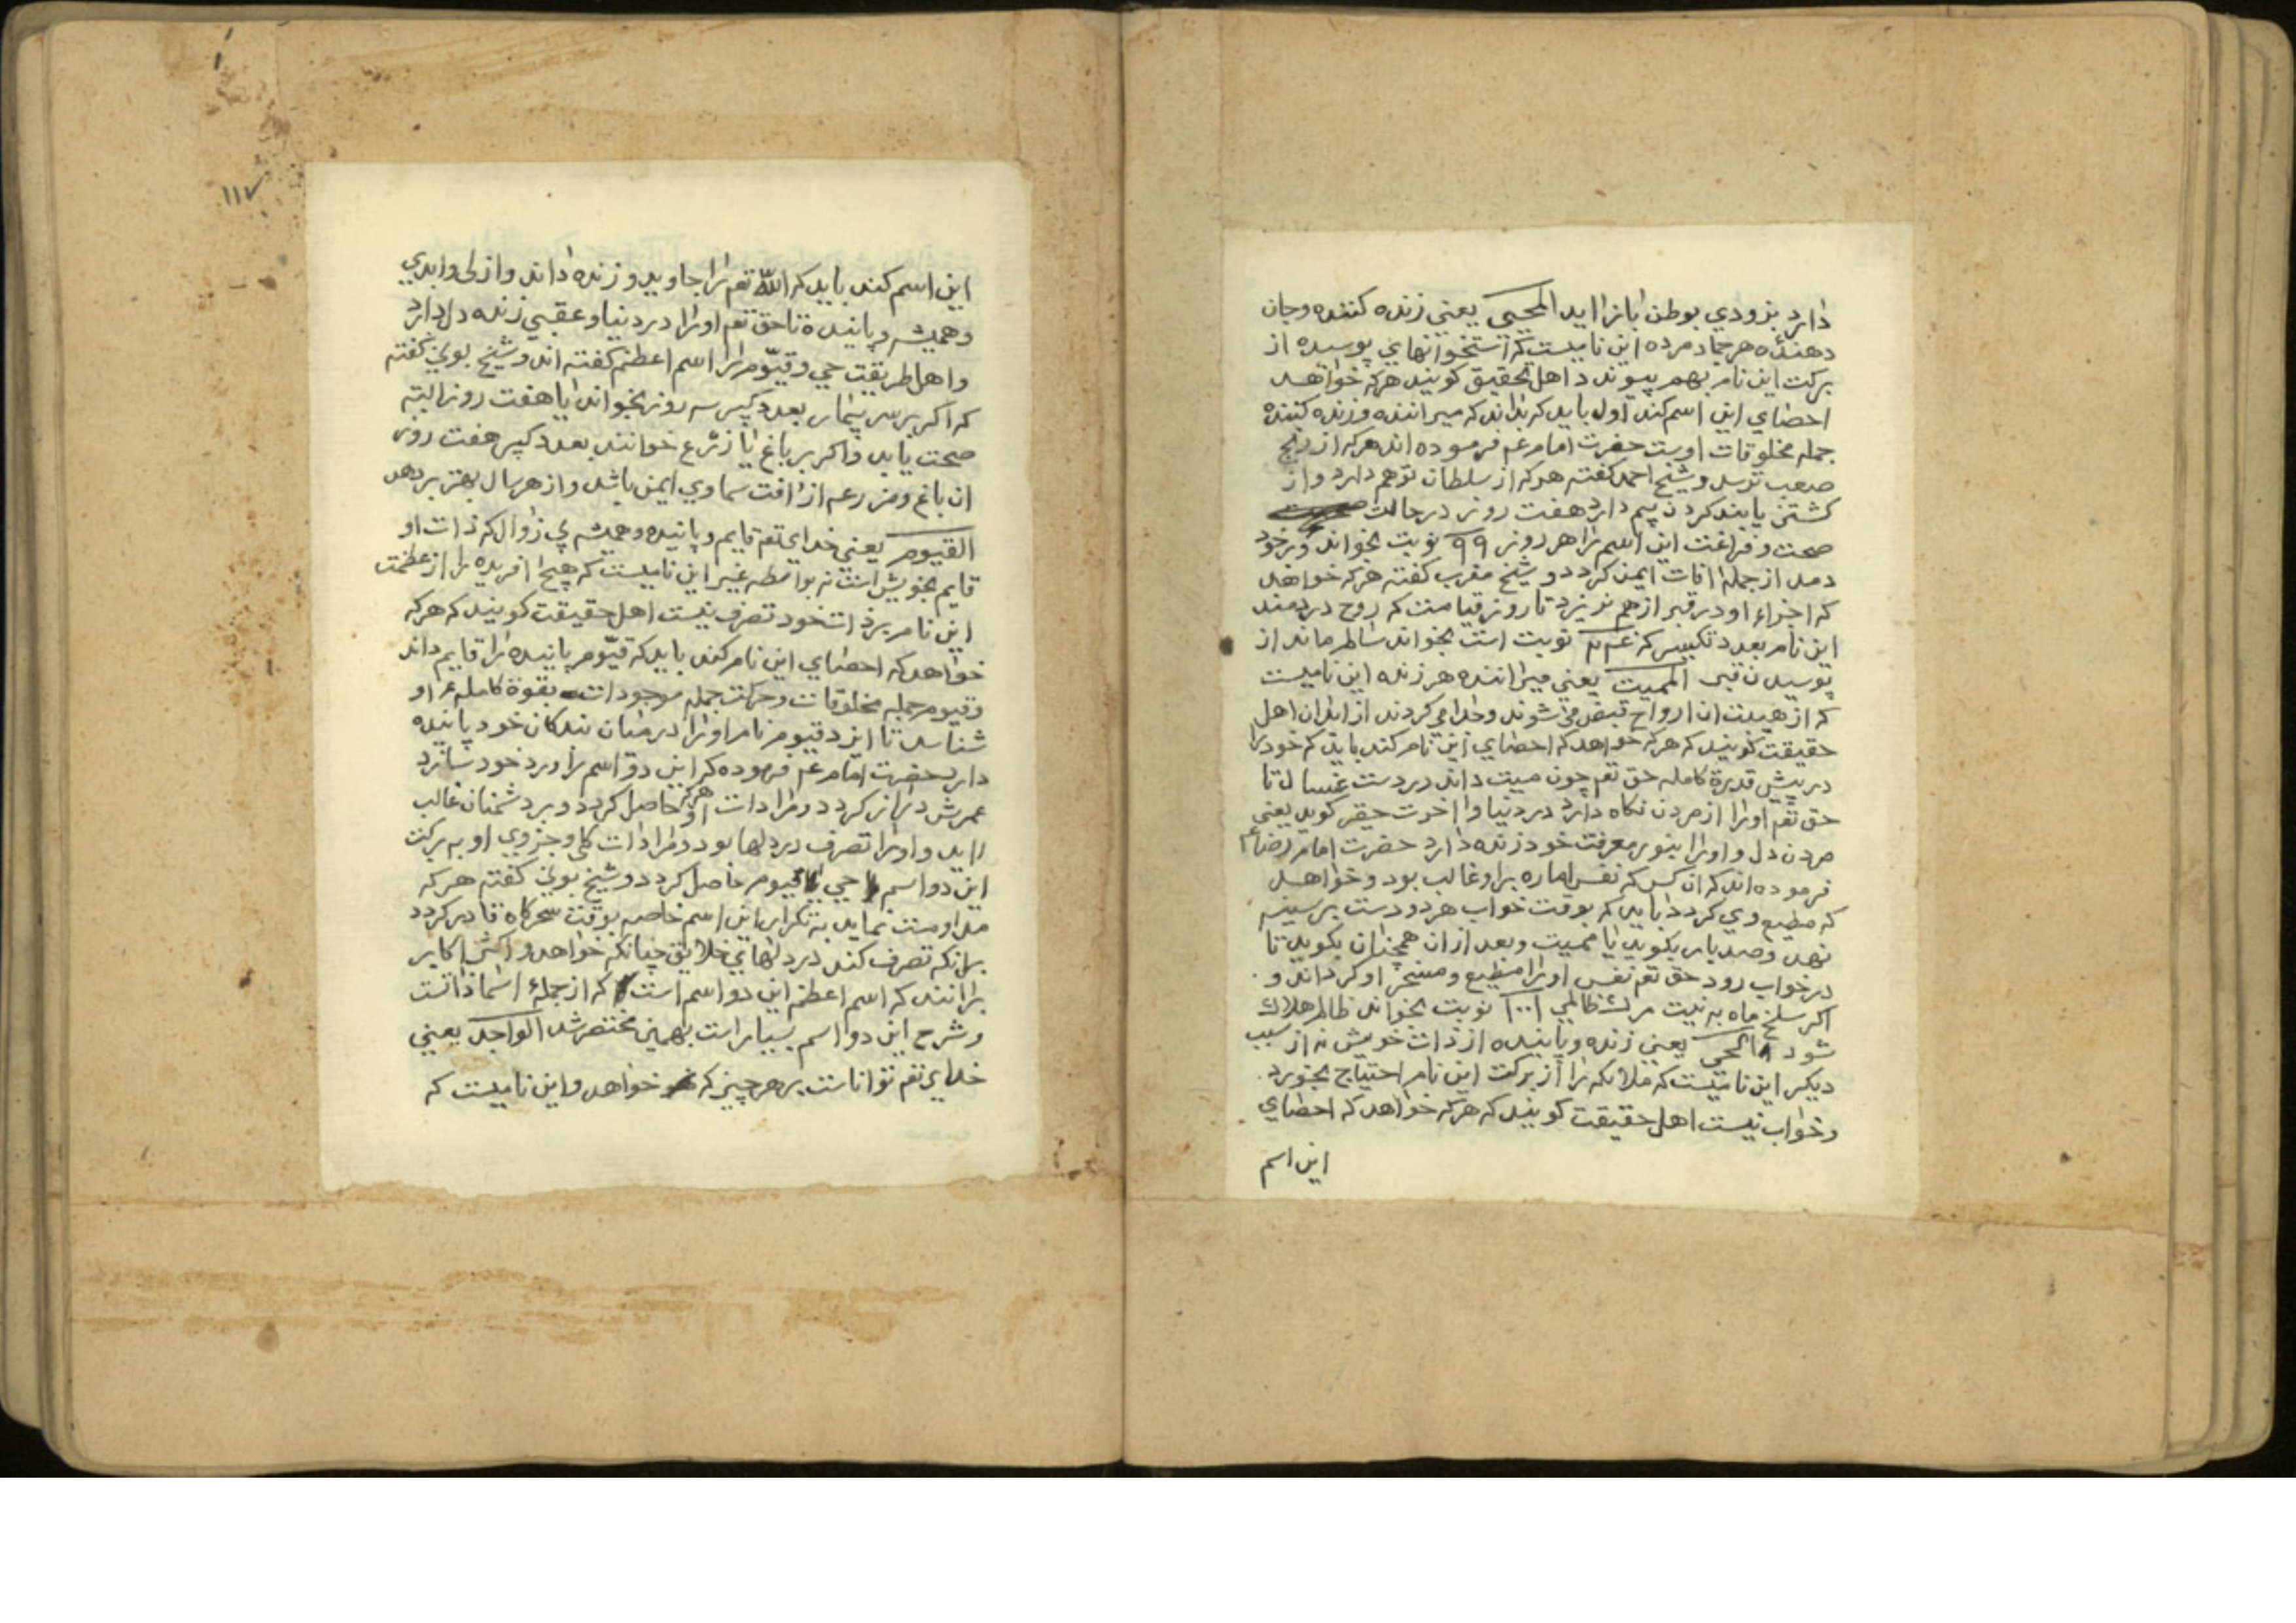 دارد بزودي بوطن باز ايد المحيي يعني زنده كننده وجان
دهندهٔ هر جماد مرده اين ناميست كه استخوانهاي پوسيده از
بركت اين نام بهم پيوندد اهل تحقيق كويند هركه خواهد
احصاي اين اسم كند اول بايد كه بداند كه ميراننده وزنده كننده
جمله مخلوقات اوست حضرت امام عم فرموده اند هركه از رنج
صعب ترسد وشيخ احمد كفته هركه از سلطان توهم دارد واز
كشتن يا بند كردن بيم دارد هفت روز در حالت
صحت وفراغت اين اسم را هر روز ٩٩ نوبت بخواند وبر خود
دمد از جمله افات ايمن كردد وشيخ مغرب كفته هركه خواهد
كه اجزاء او در قبر از هم نريزد تا روز قيامت كه روح دردمند
اين نام بعدد تكسير كه نوبت است بخواند سالم ماند از
پوسيدن قبر المميت يعني ميراننده هر زنده اين ناميست
كه از هيبت ان ارواح قبض مي شوند وجدا مي كردند از ابدان اهل
حقيقت كويند كه هركه خواهد كه احصاي اين نام كند بايد كه خود را
در پيش قدرة كامله حق تعم چون ميت داند در دست غسال تا
حق تعم اورا از مردن نكاه دارد در دنيا واخرت حقير كويد يعني
مردن دل واورا بنور معرفت خود زنده دارد حضرت امام رضا عم
فرموده اند كه ان كس كه نفس اماره براو غالب بود وخواهد
كه مطيع وي كردد بايد كه بوقت خواب هر دو دست بر سينه
نهد وصد بار بكويد يا مميت وبعد از ان همچنان بكويد تا
در خواب رود حق تعم نفس اورا مطيع ومسخر او كرداند و
اكر سلخ ماه به نيت مرك ظالمي ١٠٠١ نوبت بخواند ظالم هلاك
شود الحي يعني زنده وپاينده از ذات خويش نه از سبب
ديكر اين ناميست كه ملائكه را از بركت اين نام احتياج بخورد
وخواب نيست اهل حقيقت كويند كه هركه خواهد كه احصاي
اين اسم
١١٧
اين اسم كند بايد كه الله تعم را جاويد وزنده داند وازلي وابدي
وهميشه وپاينده تا حق تعم اورا در دنيا وعقبي زنده دل دارد
واهل طريقت حي وقيّوم را اسم اعظم كفته اند وشيخ بوني كفته
كه اكر بر سر بيمار بعدد كبير سه روز بخواند يا هفت روز البته
صحت يابد واكر بر باغ يا زرع خوانند بعدد كبير هفت روز
ان باغ ومزرعه از افت سماوي ايمن باشد واز هر سال بهتر بر دهد
القيوم يعني خداي تعم قايم وپاينده وهميشه بي زوال كه ذات او
قايم بخويش است نه بواسطه غير اين ناميست كه هيچ افريده را از عظمت
اين نام بر ذات خود تصرف نيست اهل حقيقت كويند كه هركه
خواهد كه احصاي اين نام كند بايد كه قيّوم پاينده را قايم داند
وقيوم جمله مخلوقات وحركت جمله موجودات بقوة كامله او
شناسد تا ايزد قيوم نام اورا در ميان بندكان خود پاينده
دارد حضرت امام عم فرموده كه اين دو اسم را ورد خود سازد
عمرش دراز كردد ومرادات او حاصل كردد وبر دشمنان غالب
ايد واورا تصرف در دلها بود ومرادات كلي وجزوي او به بركت
اين دو اسم يا حي يا قيوم حاصل كردد وشيخ بوني كفته هركه
مداومت نمايد به تكرار اين اسم خاصه بوقت سحركاه قادر كردد
برانكه تصرف كند در دلهاي خلايق چنانكه خواهد واكثر اكابر
برانند كه اسم اعظم اين دو اسم است كه از جملهٔ اسما ذاتست
وشرح اين دو اسم بسيار است بهمين مختصر شد الواجد يعني
خداي تعم تواناست بر هر چيز كه خواهد واين ناميست كه